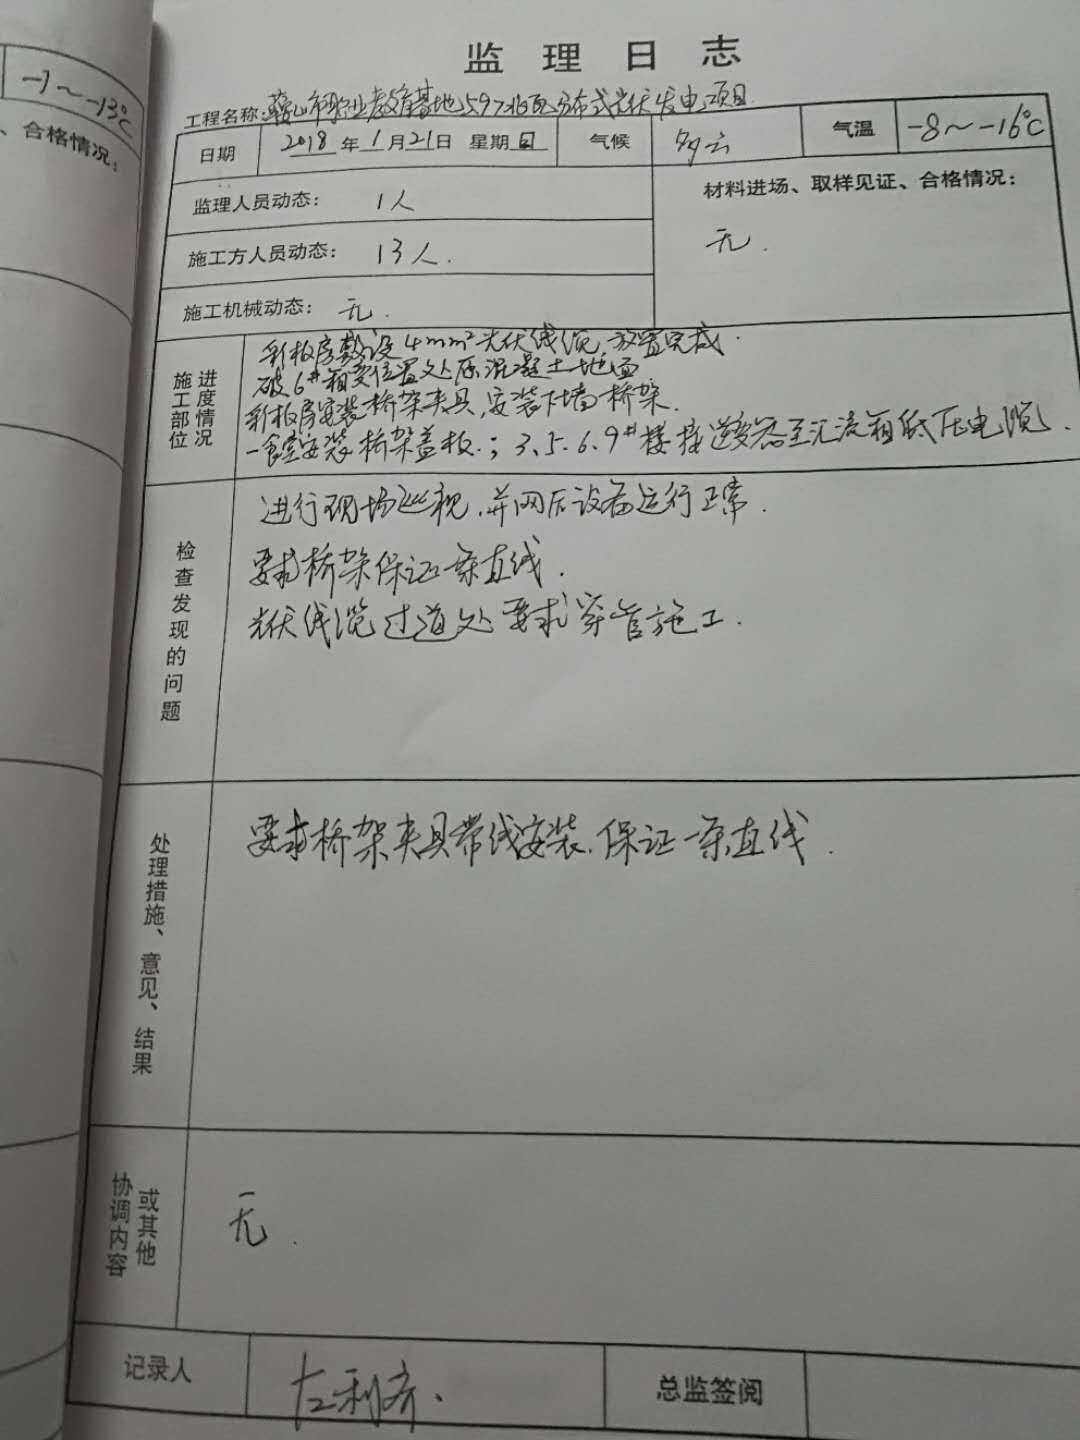 -7～-13℃
、合格情况：
监理日志
工程名称：鞍山市职业教育基地5.9726兆瓦分布式光伏发电项目
日期 2018年1月21日 星期日 气候 多云 气温 -8～-16℃
监理人员动态： 1人
材料进场、取样见证、合格情况：
无.
施工方人员动态： 13人.
施工机械动态： 无.
施工部位进度情况
彩板房敷设4mm²光伏线缆,放置完成.
破6#箱变位置处原混凝土地面
彩板房安装桥架夹具,安装下墙桥架.
一食堂安装桥架盖板.；3.5.6.9#楼接逆变器至汇流箱低压电缆.
检查发现的问题
进行现场巡视,并网后设备运行正常.
要求桥架保证一条直线.
光伏线缆过道处要求穿管施工.
处理措施、意见、结果
要求桥架夹具带线安装,保证一条直线.
协调内容或其他
无.
记录人 左利齐. 总监签阅